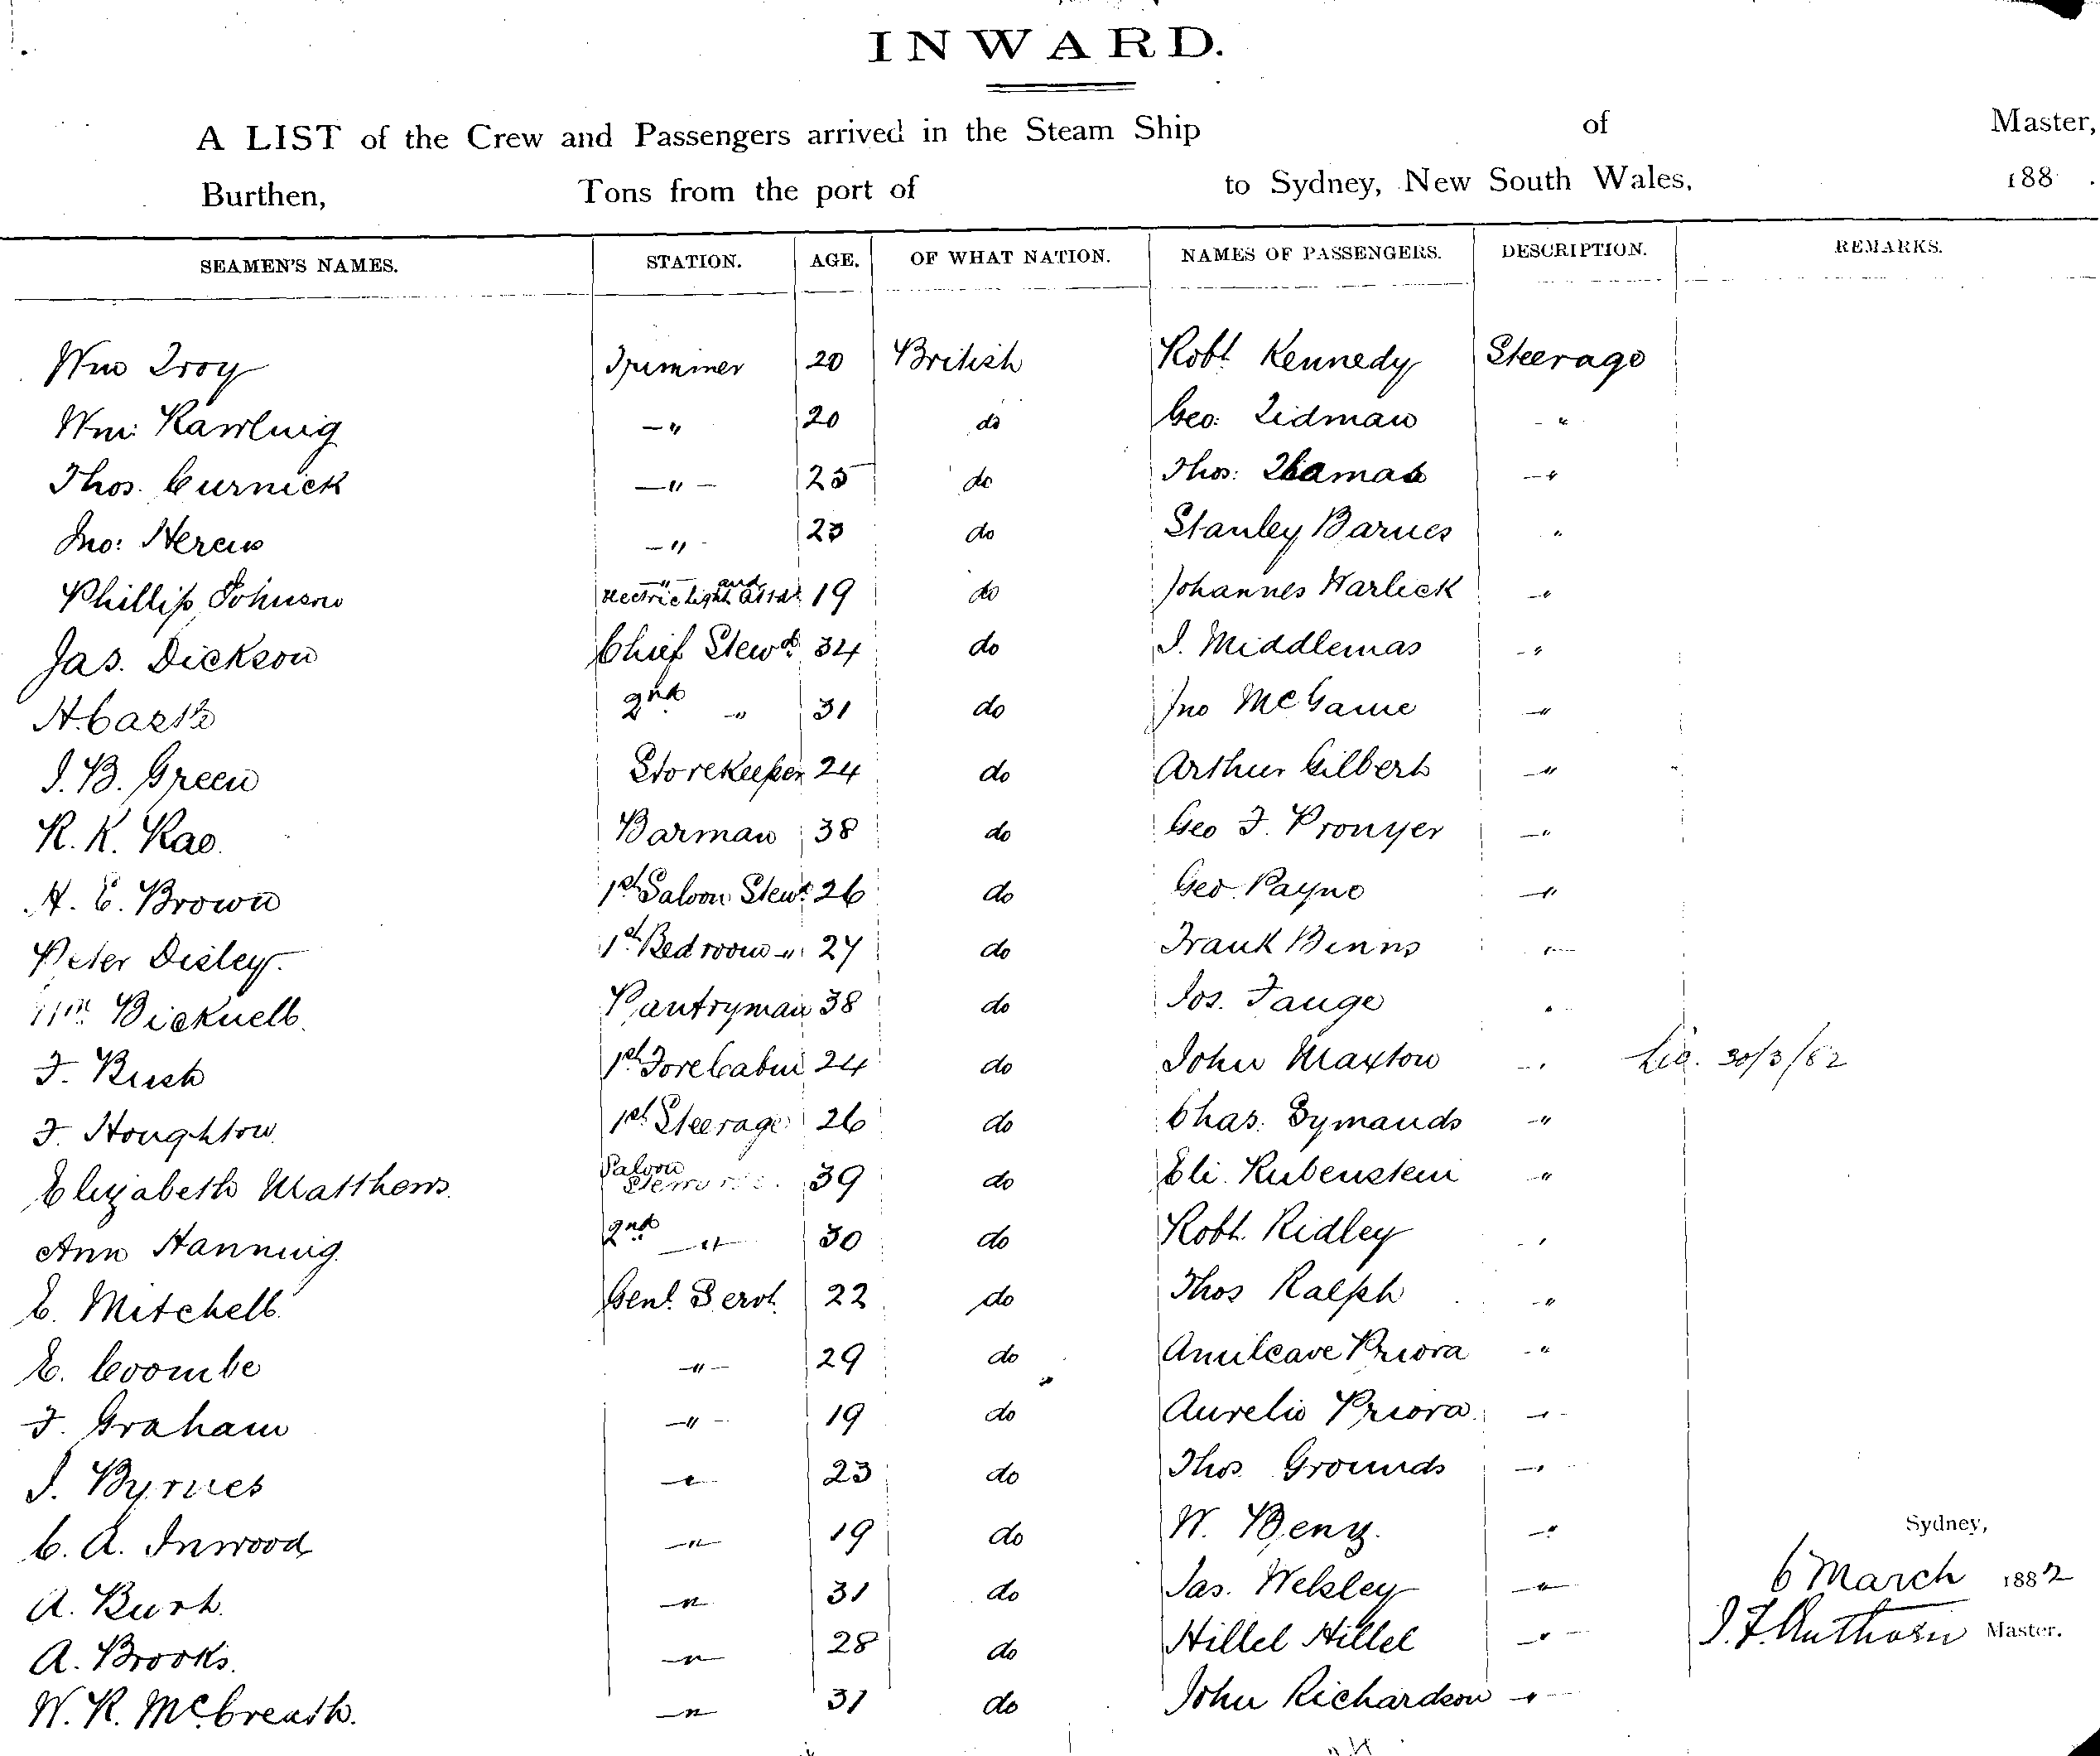 INWARD.
A LIST of the Crew and Passengers arrived in the Steam Ship of Master,
Burthen, Tons from the port of to Sydney, New South Wales, 188 .
SEAMEN'S NAMES. STATION. AGE. OF WHAT NATION. NAMES OF PASSENGERS. DESCRIPTION. REMARKS.
Wm Troy Trimmer 20 British Robt Kennedy Steerage
Wm: Rawling —"— 20 do Geo: Tidman "
Thos. Curnick —"— 25 do Thos: Thomas —"
Jno: Hercus —"— 23 do Stanley Barnes "
Phillip Johnson —"— and Electric light Asst 19 do Johannes Warlick —"
Jas. Dickson Chief Stewd. 34 do J. Middlemas —"
H. Cash 2nd " 31 do Jno McGame —"
J. B. Green Storekeeper 24 do Arthur Gilbert —"
R. K. Rae. Barman 38 do Geo F. Pronyer —"
H. E. Brown 1st Saloon Stewd. 26 do Geo. Payne —"
Peter Disley. 1st Bedroom —"— 27 do Frank Binns "—
Wm Bicknell. Pantryman 38 do Jos. Fauge "
F. Rush 1st Fore Cabin 24 do John Maxton —" Lic. 30/3/82
F. Houghton 1st Steerage 26 do Chas. Symands —"
Elizabeth Matthews. Saloon Stewardess. 39 do Eli. Rubenstein —"
Ann Hanning. 2nd —"— 30 do Robt. Ridley —"
E. Mitchell. Genl. Servt. 22 do Thos Ralph —"
E. Coombe —"— 29 do Amilcare Priora —"
F. Graham —"— 19 do Aurelio Priora. —"—
J. Byrnes —"— 23 do Thos. Grounds —"—
C. A. Inwood —"— 19 do W. Benz. —" Sydney,
A. Burt. —"— 31 do Jas. Welsley —"— 6 March 1882
A. Brooks. —"— 28 do Hillel Hillel —"— Master.
W. R. McCreath. —"— 31 do John Richardson —"—